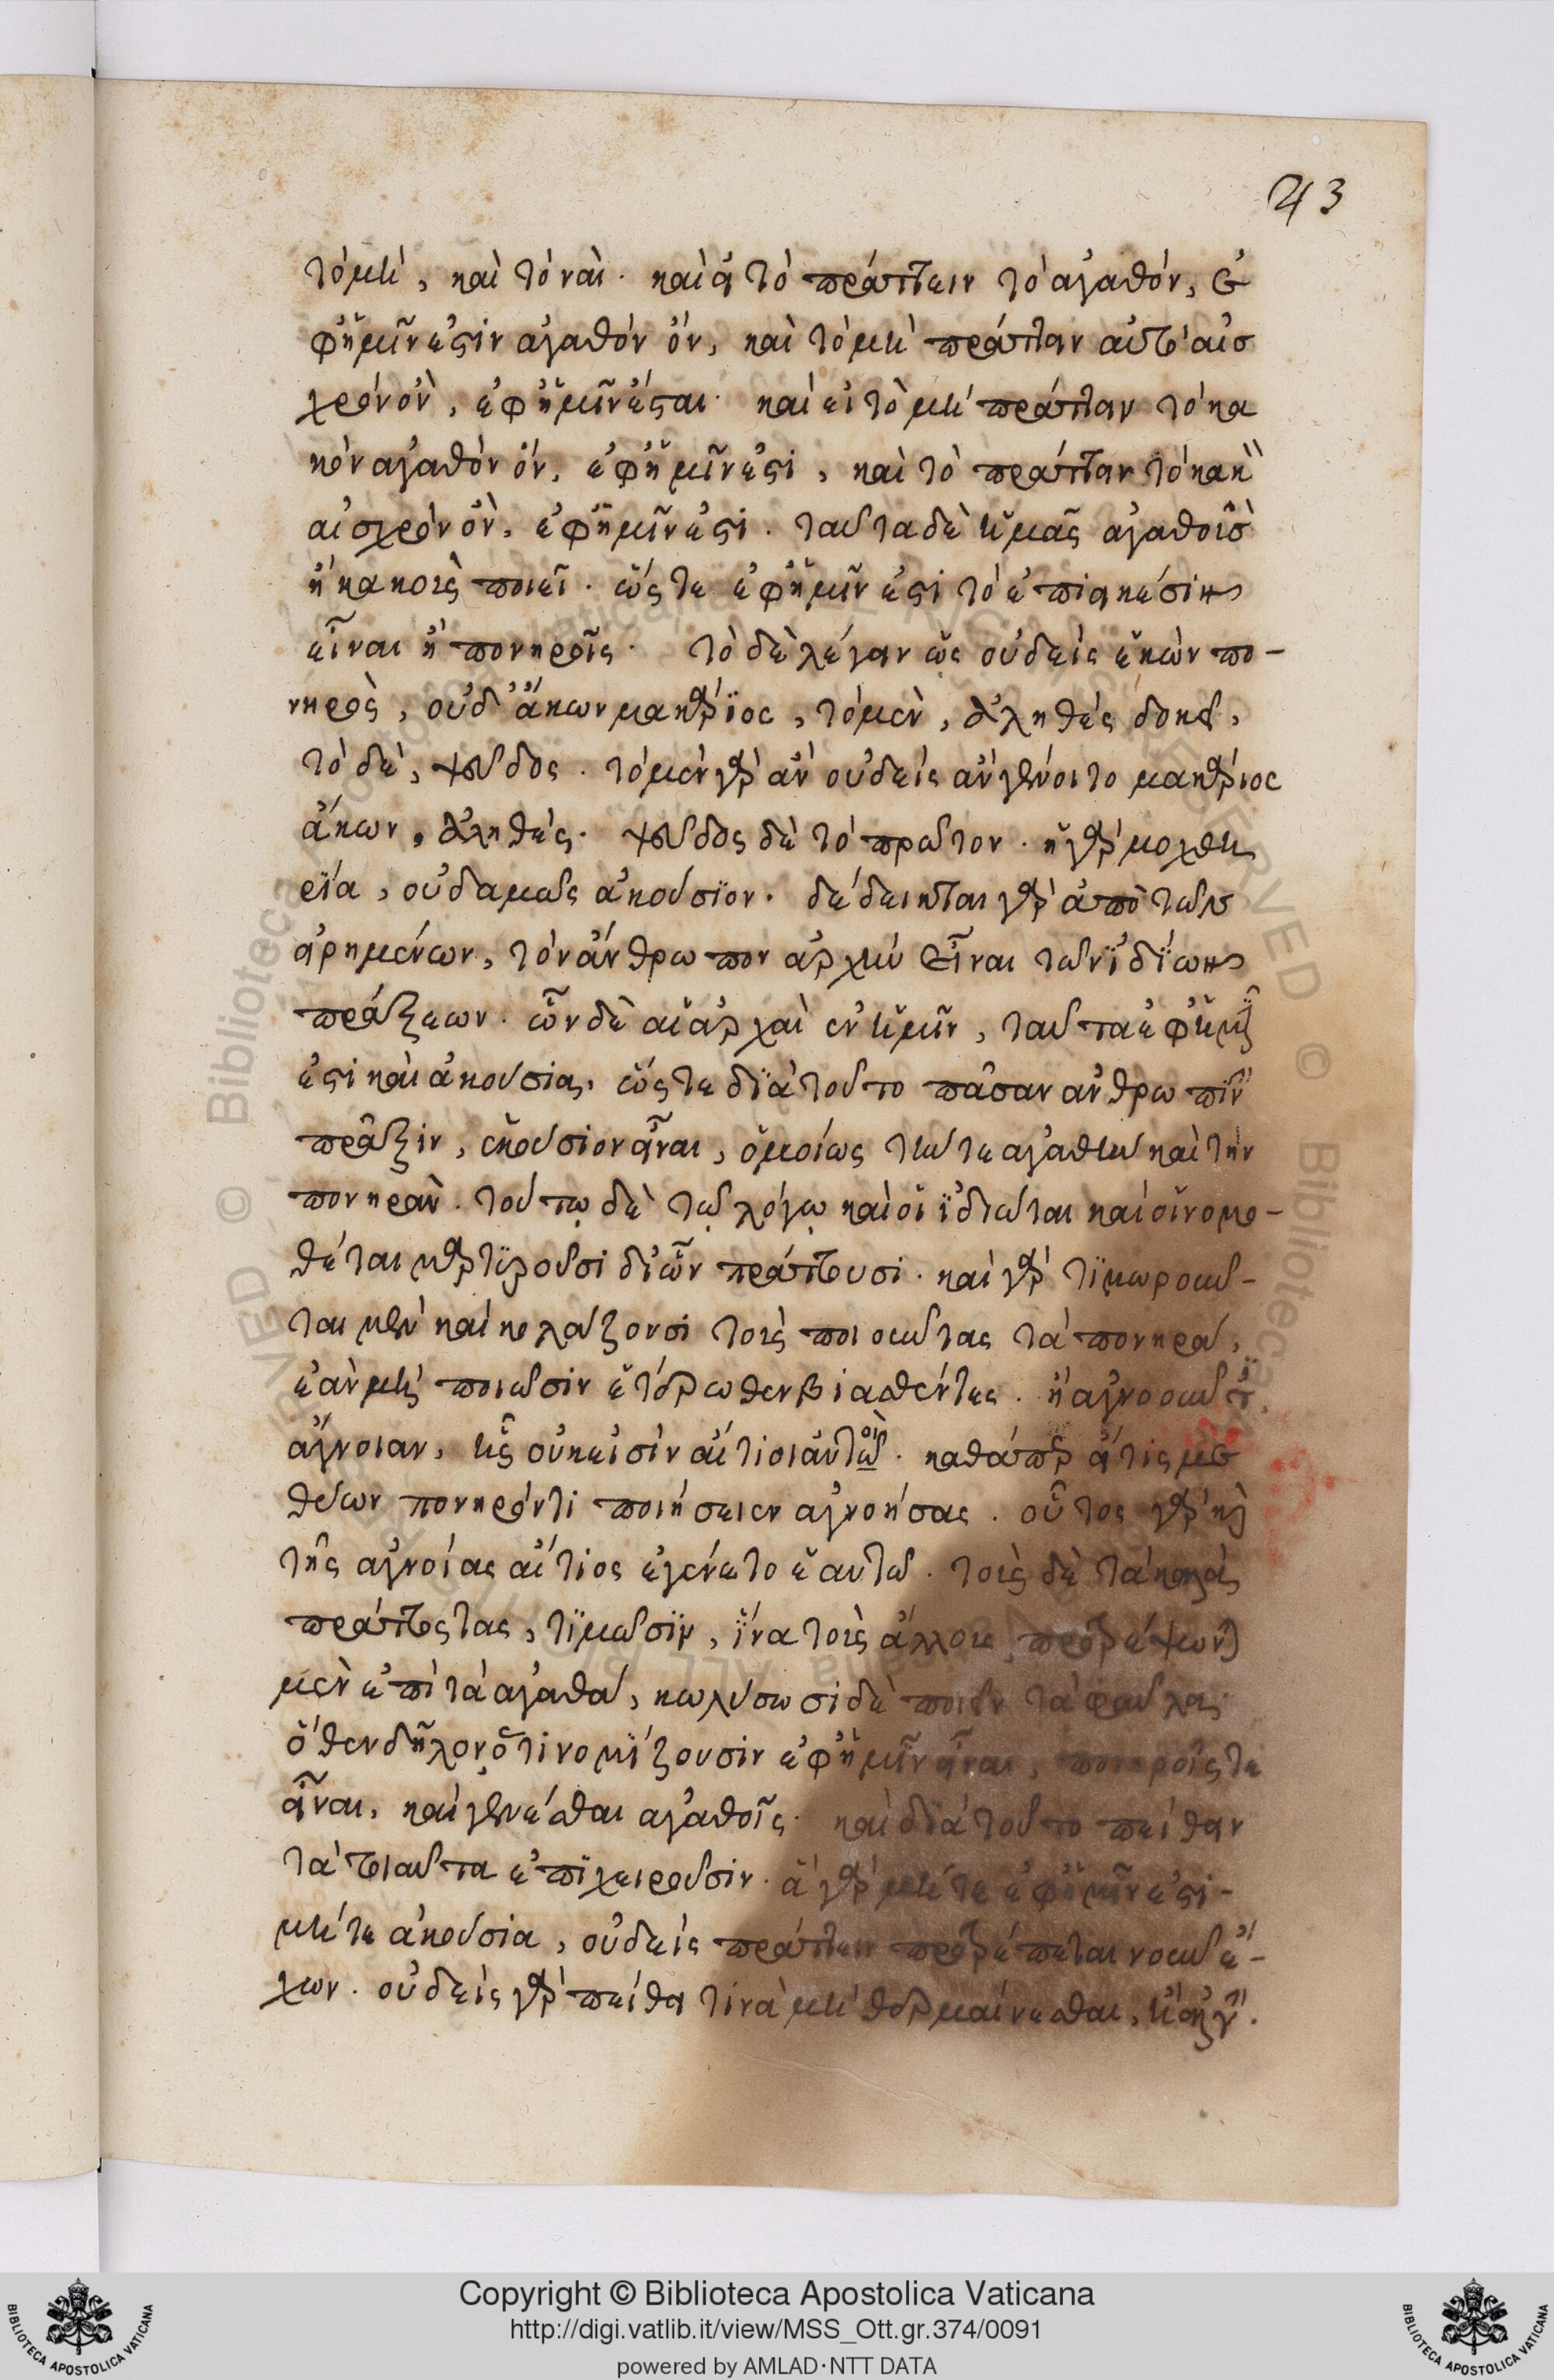 43
τὸ μὴ, καὶ τὸ ναὶ. καὶ εἰ τὸ πράττειν τὸ ἀγαθὸν, ἐ
φ' ἡμῖν ἐστὶν ἀγαθὸν ὂν, καὶ τὸ μὴ πράττειν αὐτὸ αἰσ
χρὸν ὂν, ἐφ' ἡμῖν ἔσται. καὶ εἰ τὸ μὴ πράττειν τὸ κα
κὸν ἀγαθὸν ὂν, ἐφ' ἡμῖν ἐστὶ, καὶ τὸ πράττειν τὸ κακὸν
αἰσχρὸν ὂν, ἐφ' ἡμῖν ἐστι. ταῦτα δὲ ἡμᾶς ἀγαθοὺς
ἢ κακοὺς ποιεῖ. ὥς τε ἐφ' ἡμῖν ἐστι τὸ ἐπιεικέσιν
εἶναι ἢ πονηροῖς. τὸ δὲ λέγειν ὡς οὐδεὶς ἑκὼν πο-
νηρὸς, οὐδ' ἄκων μακάριος, τὸ μὲν, ἀληθὲς δοκεῖ,
τὸ δὲ, ψεῦδος. τὸ μὲν γὰρ ἂν οὐδεὶς ἂν γένοιτο μακάριος
ἄκων, ἀληθές. ψεῦδος δὲ τὸ πρῶτον. ἡ γὰρ μοχθη
ρία, οὐδαμῶς ἀκούσιον. δέδεικται γὰρ ἀπὸ τῶν
εἰρημένων, τὸν ἄνθρωπον ἀρχὴν εἶναι τῶν ἰδίων
πράξεων. ὧν δὲ αἱ ἀρχαὶ ἐν ἡμῖν, ταῦτα ἐφ' ἡμῖν
ἐστι καὶ ἀκούσια. ὥς τε διὰ τοῦτο πᾶσαν ἀνθρωπίνην
πρᾶξιν, ἑκούσιον εἶναι, ὁμοίως τήν τε ἀγαθὴν καὶ τὴν
πονηρὰν. τούτῳ δὲ τῷ λόγῳ καὶ οἱ ἰδιῶται καὶ οἱ νομο-
θέται μαρτυροῦσι δι' ὧν πράττουσι. καὶ γὰρ τιμωροῦν-
ται μὲν καὶ κολάζουσι τοὺς ποιοῦντας τὰ πονηρά,
ἐὰν μὴ ποιῶσιν ἑτέρωθεν βιασθέντες. ἢ ἀγνοοῦντες
ἄγνοιαν, ἧς οὐκ εἰσὶν αἴτιοι αὐτοὶ. καθάπερ εἴ τις με
θύων πονηρόν τι ποιήσειεν ἀγνοήσας. οὗτος γὰρ καὶ
τῆς ἀγνοίας αἴτιος ἐγένετο ἑαυτῷ. τοὺς δὲ τὰ καλὰ
πράττοντας, τιμῶσιν, ἵνα τοὺς ἄλλους προτρέψωνται
μὲν ἐπὶ τὰ ἀγαθά, κωλύσωσι δὲ ποιεῖν τὰ φαῦλα.
ὅθεν δῆλον ὅτι νομίζουσιν ἐφ' ἡμῖν εἶναι, πονηροῖς τε
εἶναι, καὶ γενέσθαι ἀγαθοῖς. καὶ διὰ τοῦτο πείθειν
τὰ τοιαῦτα ἐπιχειροῦσιν. ἃ γὰρ μήτε ἐφ' ἡμῖν ἐστι-
μήτε ἀκούσια, οὐδεὶς πράττειν προτρέπεται νοῦν ἔ-
χων. οὐδεὶς γὰρ πείθει τινὰ μὴ θερμαίνεσθαι, ἢ ἀλγεῖν.
Copyright © Biblioteca Apostolica Vaticana
http://digi.vatlib.it/view/MSS_Ott.gr.374/0091
powered by AMLAD·NTT DATA
BIBLIOTECA APOSTOLICA VATICANA
BIBLIOTECA APOSTOLICA VATICANA